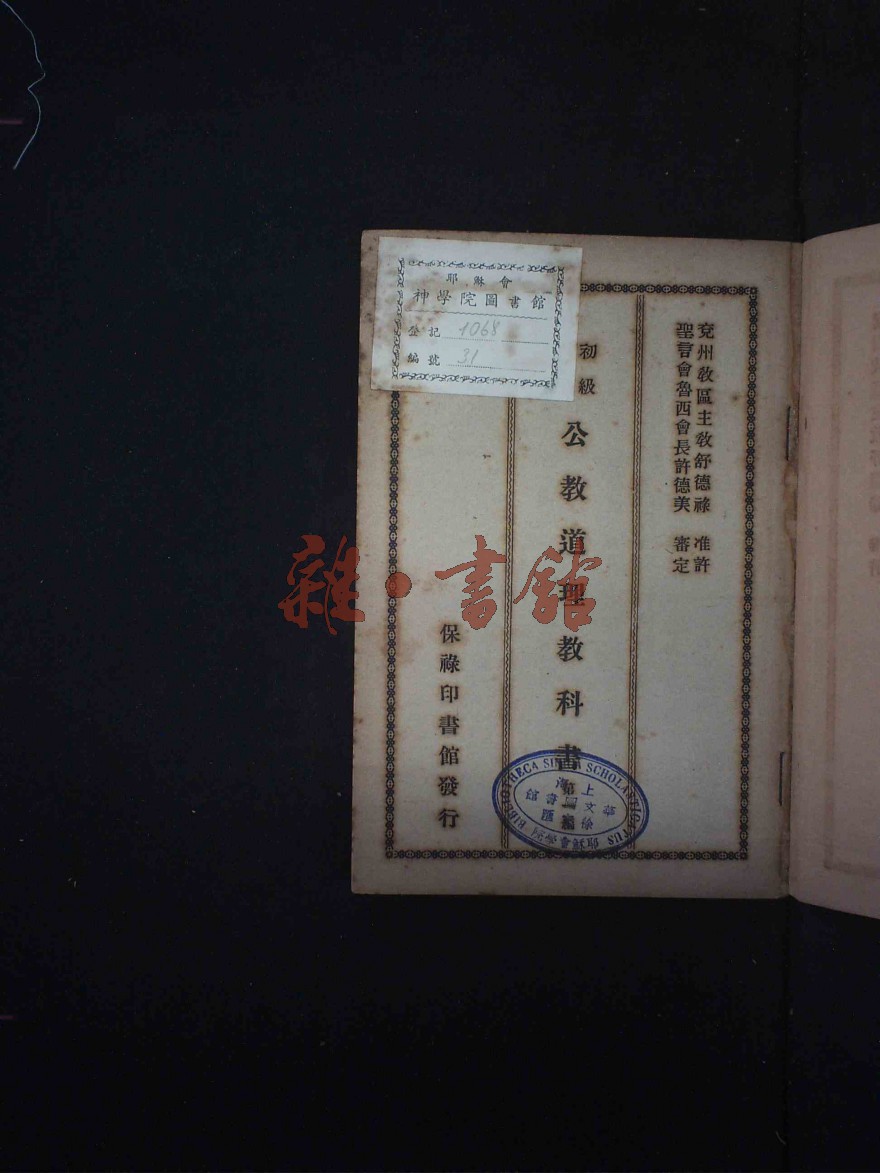 兗州教區主教舒德祿 准許
聖言會魯西會長許德美 審定
初級 公教道理教科書
保祿印書館發行
耶穌會
神學院圖書館
登記 1068
編號 31
BIBLIOTHECA SINICA SCHOLASTICATUS
上海
徐匯
雜·書館